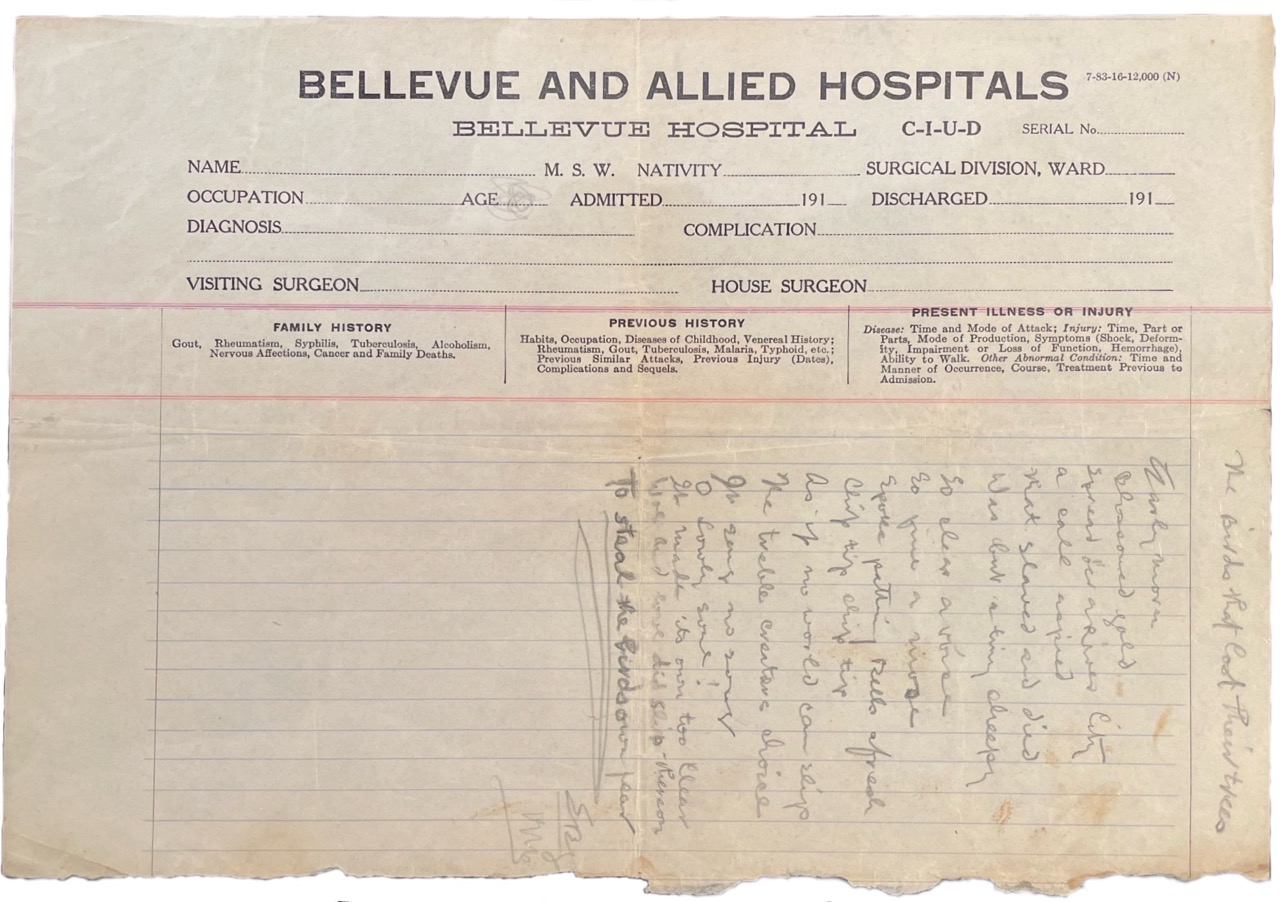 BELLEVUE AND ALLIED HOSPITALS
7-83-16-12,000 (N)
BELLEVUE HOSPITAL C-I-U-D SERIAL No.
NAME M. S. W. NATIVITY SURGICAL DIVISION, WARD
OCCUPATION AGE ADMITTED 191 DISCHARGED 191
DIAGNOSIS COMPLICATION
VISITING SURGEON HOUSE SURGEON
FAMILY HISTORY
Gout, Rheumatism, Syphilis, Tuberculosis, Alcoholism,
Nervous Affections, Cancer and Family Deaths.
PREVIOUS HISTORY
Habits, Occupation, Diseases of Childhood, Venereal History;
Rheumatism, Gout, Tuberculosis, Malaria, Typhoid, etc.;
Previous Similar Attacks, Previous Injury (Dates),
Complications and Sequels.
PRESENT ILLNESS OR INJURY
Disease: Time and Mode of Attack; Injury: Time, Part or
Parts, Mode of Production, Symptoms (Shock, Deform-
ity, Impairment or Loss of Function, Hemorrhage),
Ability to Walk. Other Abnormal Condition: Time and
Manner of Occurrence, Course, Treatment Previous to
Admission.
The Birds that Lost Their trees
Early morn
blossomed gold
spread o'er a river city
a call
that slaved and died
Was but a tiny cheepy
So clear a voice
So fine a
Spoke bells afresh
Chip tip chip tip
As if no world can slip
The treble creatures choice
It sang no song
O lovely song!
It made its own too clear
did slip thereon
To steal the birds own year